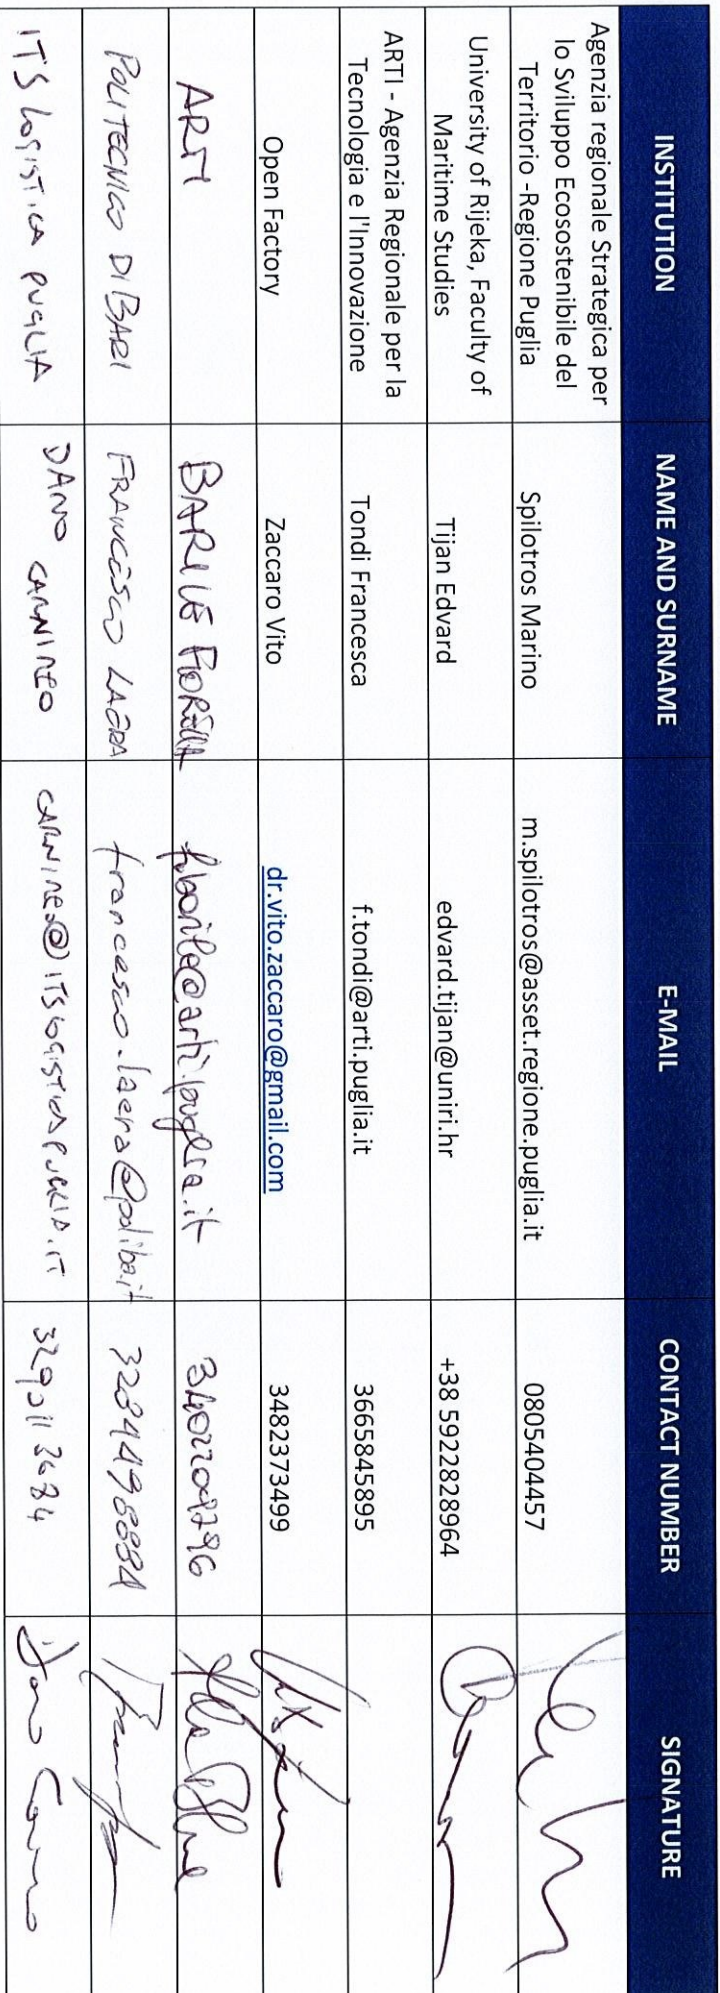 INSTITUTION NAME AND SURNAME E-MAIL CONTACT NUMBER SIGNATURE
Agenzia regionale Strategica per
lo Sviluppo Ecosostenibile del
Territorio -Regione Puglia Spilotros Marino m.spilotros@asset.regione.puglia.it 0805404457
University of Rijeka, Faculty of
Maritime Studies Tijan Edvard edvard.tijan@uniri.hr +38 5922828964
ARTI - Agenzia Regionale per la
Tecnologia e l'Innovazione Tondi Francesca f.tondi@arti.puglia.it 3665845895
Open Factory Zaccaro Vito dr.vito.zaccaro@gmail.com 3482373499
ARTI BARILE FIORELLA f.barile@arti.puglia.it
POLITECNICO DI BARI FRANCESCO LAERA francesco.laera@poliba.it 3284498884
ITS LOGISTICA PUGLIA